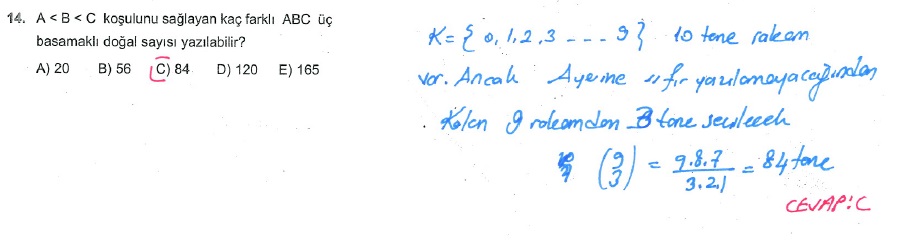 14. A < B < C koşulunu sağlayan kaç farklı ABC üç
basamaklı doğal sayısı yazılabilir?
A) 20 B) 56 C) 84 D) 120 E) 165
K = { 0, 1, 2, 3 --- 9 } 10 tane rakam
var. Ancak A yerine sıfır yazılamayacağından
Kalan 9 rakamdan 3 tane seçilecek
(9 3) = 9.8.7 / 3.2.1 = 84 tane
CEVAP: C